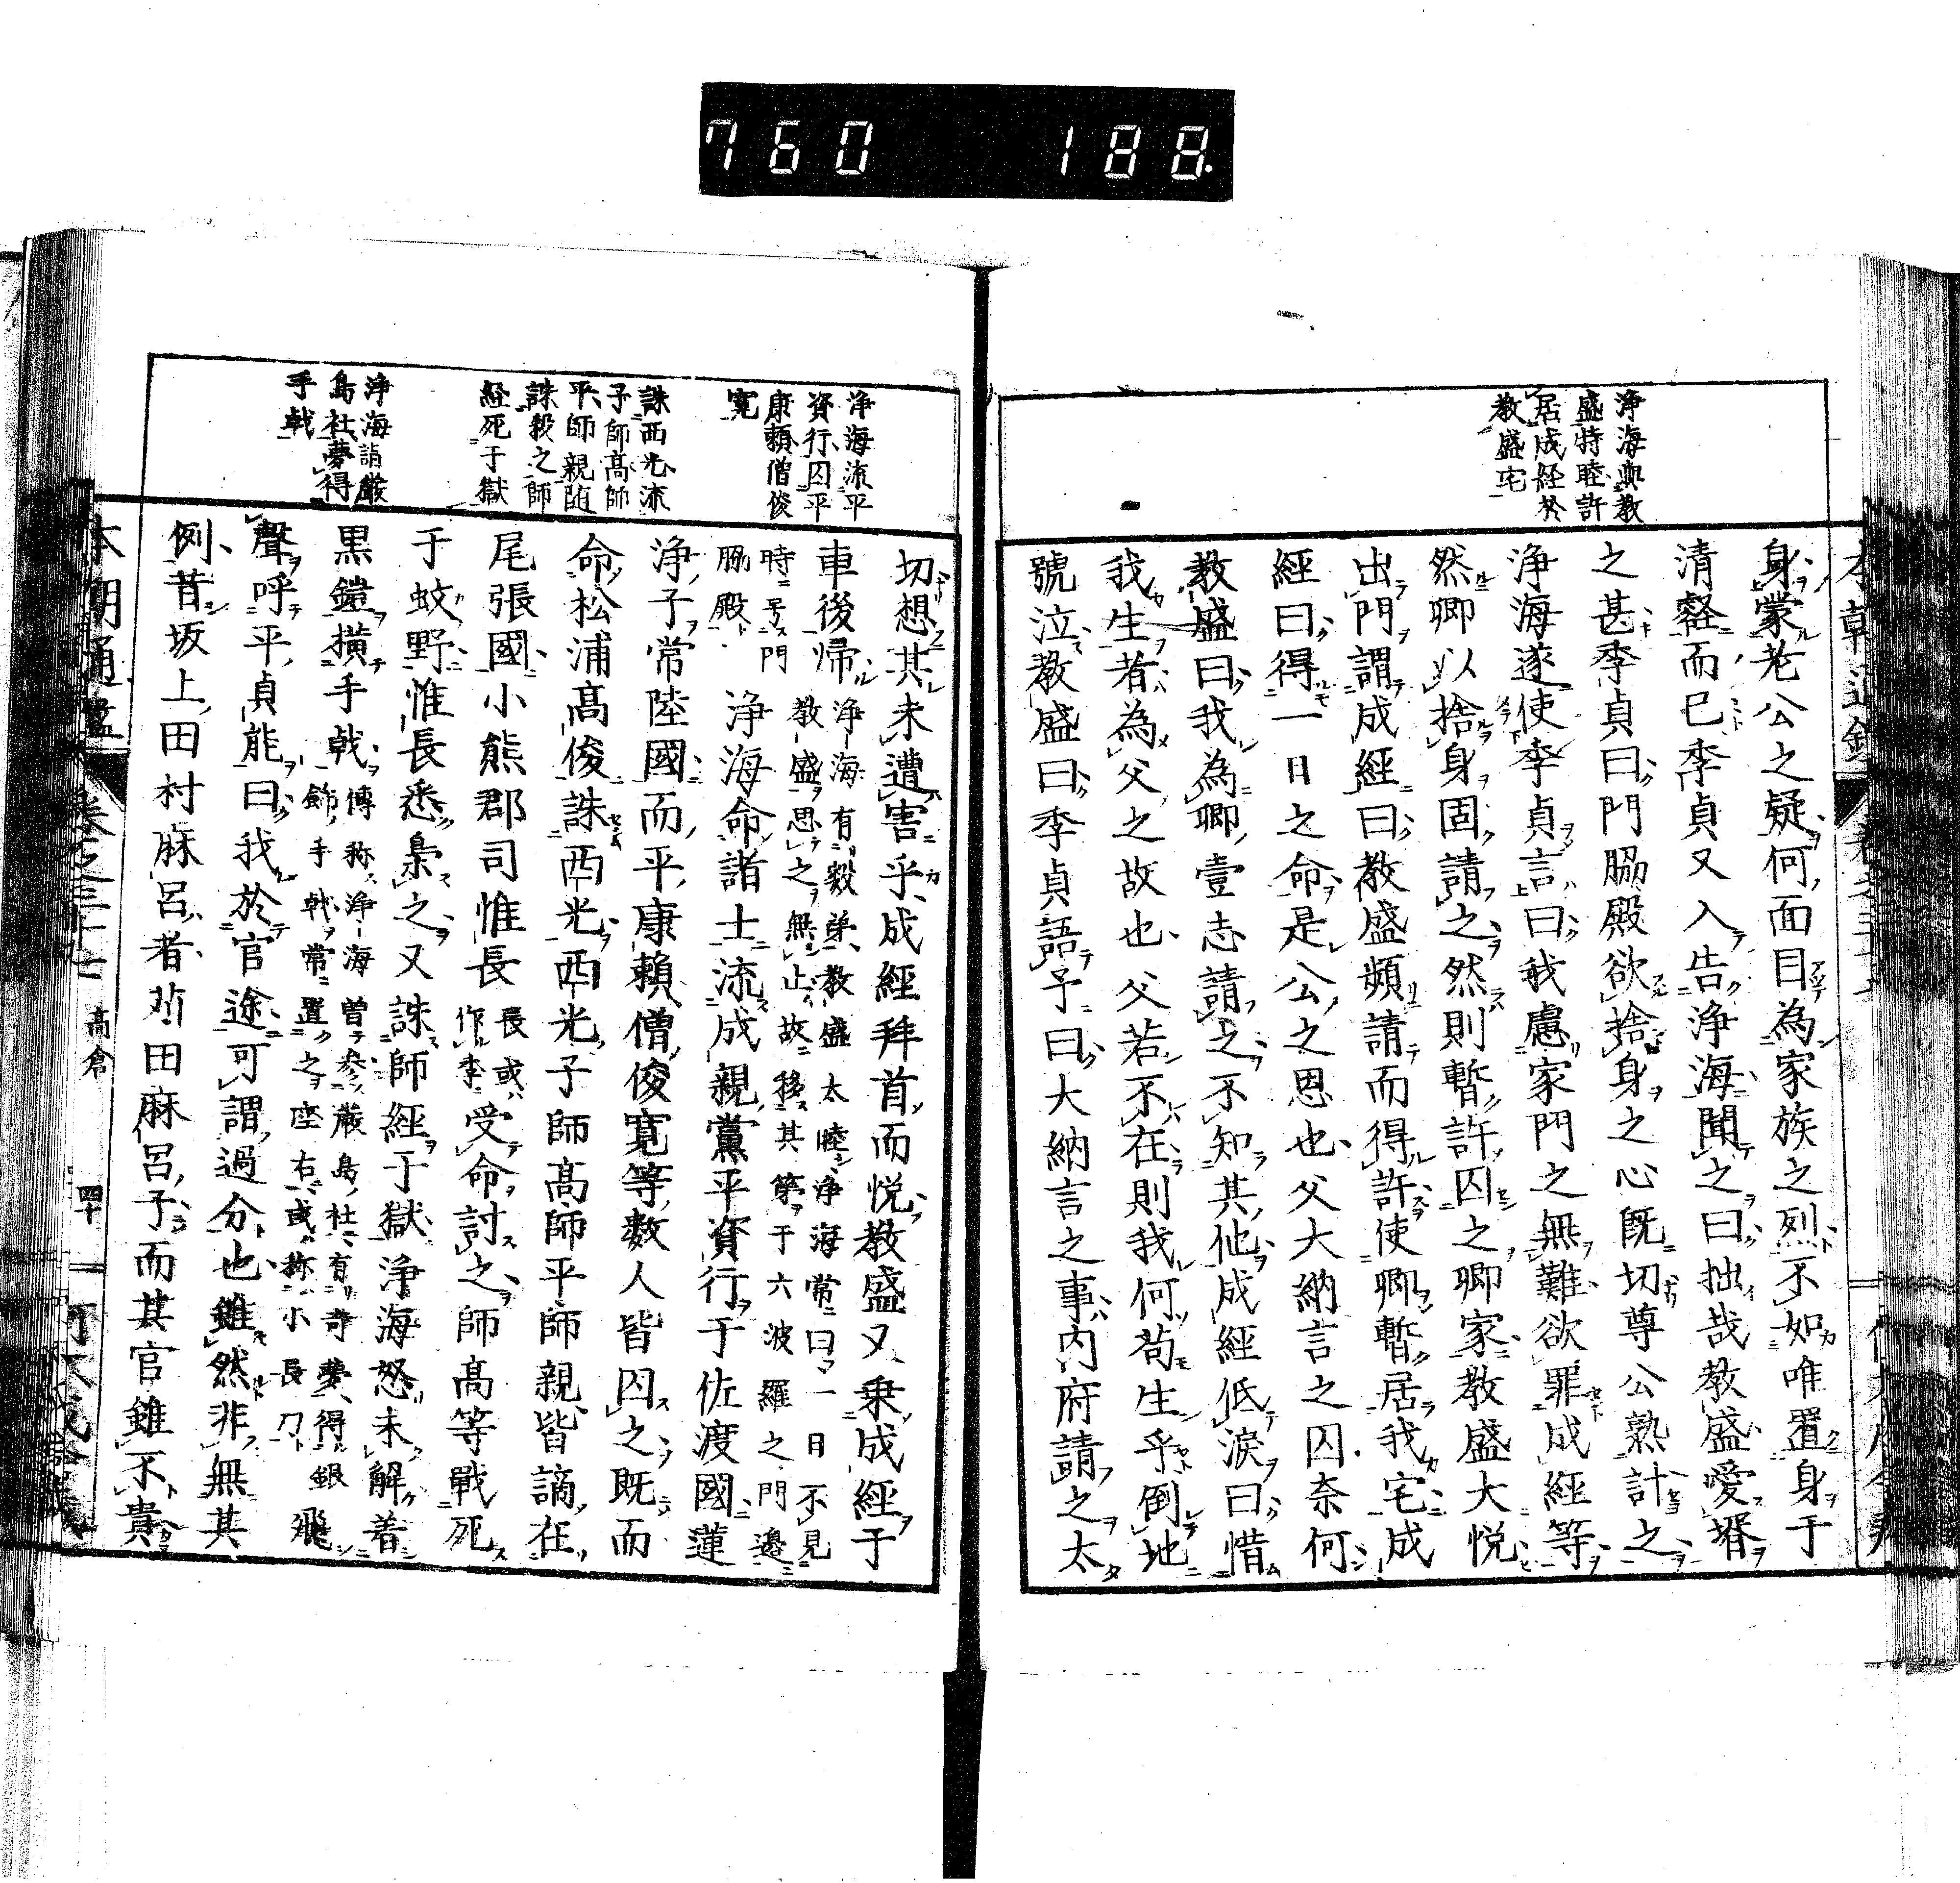 760 188.
浄海與教
盛特睦許
居成経於
教盛宅
身蒙老公之疑何面目為家族之烈不如唯置身于
清盤而已季貞又入告浄海聞之曰拙哉教盛愛壻
之甚季貞曰門脇殿欲捨身之心既切尊公熟計之
浄海遂使季貞言曰我慮家門之無難欲罪成經等
然卿以捨身固請之然則暫許囚之卿家教盛大悦
出門謂成經曰教盛頻請而得許使卿暫居我宅成
經曰得一日之命是公之恩也父大納言之囚奈何
教盛曰我為卿壹志請之不知其他成經低涙曰惜
我生者為父之故也父若不在則我何苟生乎倒地
號泣教盛曰季貞語予曰大納言之事内府請之太
浄海流平
資行囚平
康頼僧俊
寛
誅西光流
子師高師
平師親随
誅殺之師
経死于獄
浄海詣厳
島社夢得
手戟
切想其未遭害乎成經拜首而悦教盛又乗成經于
車後帰 浄海有數弟教盛太睦浄海常曰一日不見
教盛思之無止故移其第于六波羅之門邊
時号門
脇殿 浄海命諸士流成親黨平資行于佐渡國蓮
浄子常陸國而平康賴僧俊寛等數人皆囚之既而
命松浦高俊誅西光西光子師高師平師親皆謫在
尾張國小熊郡司惟長 長或
作季 受命討之師高等戰死
于蚊野惟長悉梟之又誅師經于獄浄海怒未解着
黒鎧横手戟 傳称浄海曽参厳島社有奇夢得銀
飾手戟常置之座右或称小長刀 飛
聲呼平貞能曰我於官途可謂過分也雖然非無其
例昔坂上田村麻呂者苅田麻呂子而其官雖不貴
高倉
四十